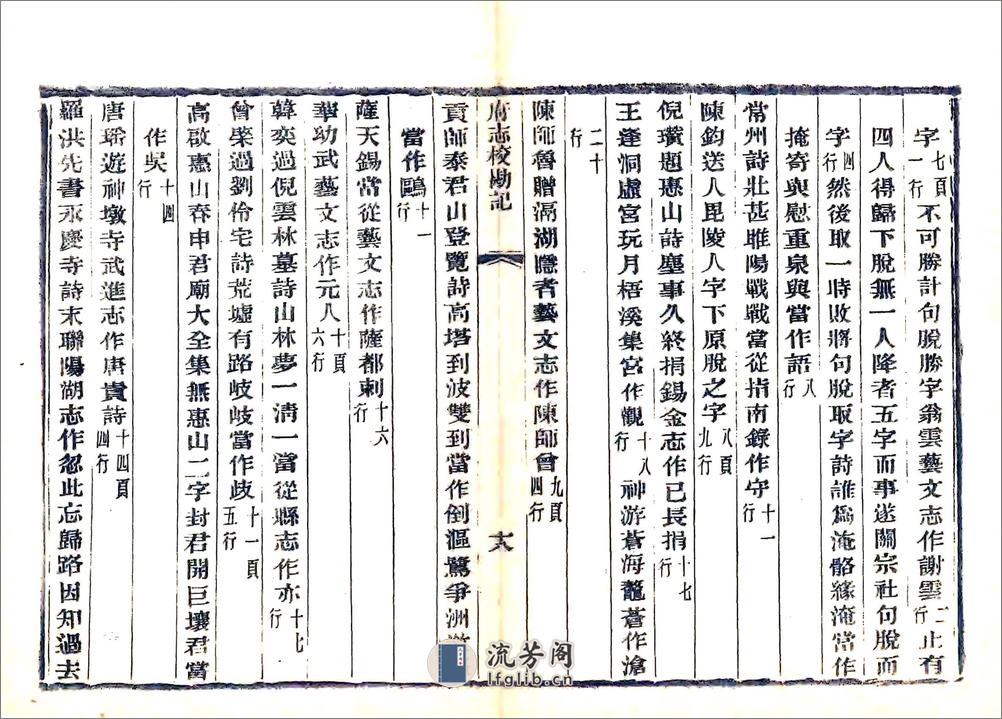 字七頁一行不可勝計句脫勝字翁雲藝文志作謝雲二行止有
四人得歸下脫無一人降者五字而事遂關宗社句脫而
字四行然後取一時敗將句脫取字詩誰爲淹骼緣淹當作
掩寄與慰重泉與當作語八行
常州詩壯甚睢陽戰戰當從指南錄作守十一行
陳鈞送人毘陵人字下原脫之字八頁九行
倪瓚題惠山詩塵事久終捐錫金志作已長捐十七行
王逢洞虛宮玩月梧溪集宮作觀十八行神游蒼海龍蒼作滄
二十行
陳師魯贈滆湖隱者藝文志作陳師曾九頁四行
府志校勘記
大
貢師泰君山登覽詩高塔到波雙到當作倒漚鷺爭洲
當作鷗十一行
薩天錫當從藝文志作薩都剌十六行
華幼武藝文志作元人十頁六行
韓奕過倪雲林墓詩山林夢一清一當從縣志作亦十七行
曾棨過劉伶宅詩荒墟有路岐岐當作歧十一頁五行
高啟惠山春申君廟大全集無惠山二字封君開巨壤君當
作吳十四行
唐瑤遊神墩寺武進志作唐貴詩十四頁四行
羅洪先書永慶寺詩末聯陽湖志作忽此忘歸路因知過去
流芳阁
lfglib.cn